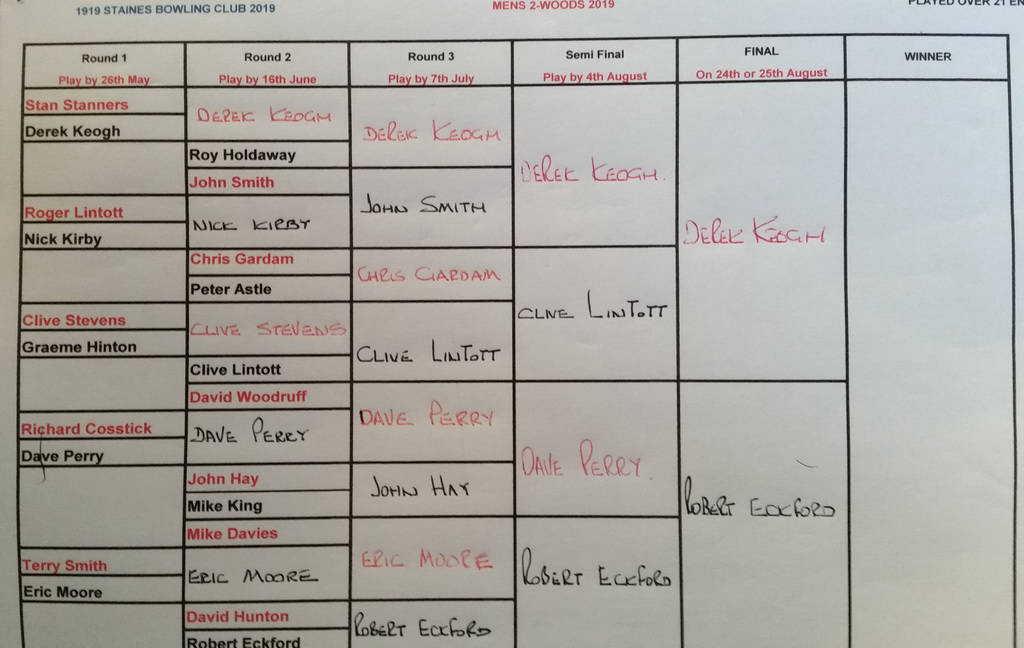 1919 STAINES BOWLING CLUB 2019
MENS 2-WOODS 2019
PLAYED OVER 21 EN
Round 1
Play by 26th May
Round 2
Play by 16th June
Round 3
Play by 7th July
Semi Final
Play by 4th August
FINAL
On 24th or 25th August
WINNER
Stan Stanners
Derek Keogh
Roger Lintott
Nick Kirby
Clive Stevens
Graeme Hinton
Richard Cosstick
Dave Perry
Terry Smith
Eric Moore
DEREK KEOGH
Roy Holdaway
John Smith
NICK KIRBY
Chris Gardam
Peter Astle
CLIVE STEVENS
Clive Lintott
David Woodruff
DAVE PERRY
John Hay
Mike King
Mike Davies
ERIC MOORE
David Hunton
Robert Eckford
DEREK KEOGH
JOHN SMITH
CHRIS GARDAM
CLIVE LINTOTT
DAVE PERRY
JOHN HAY
ERIC MOORE
ROBERT ECKFORD
DEREK KEOGH.
CLIVE LINTOTT
DAVE PERRY.
ROBERT ECKFORD
DEREK KEOGH
ROBERT ECKFORD